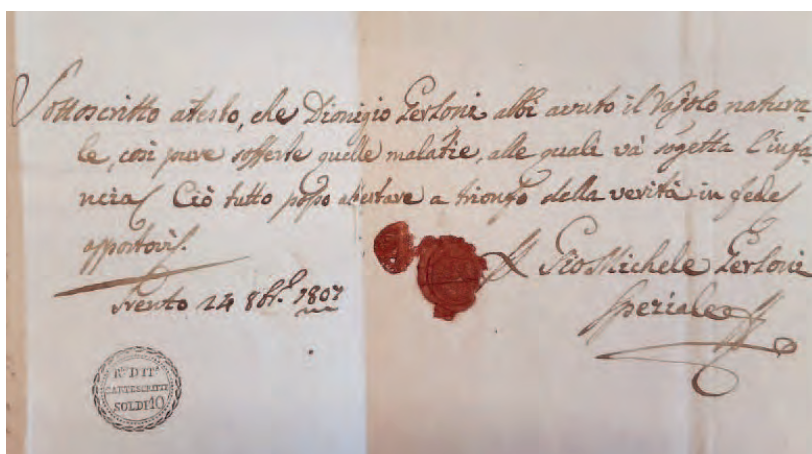 Sottoscritto atesto, che Dionigio Gerloni abbi avuto il Vajolo natura-
le, così pure sofferte quelle malatie, alle quali và sogetta l'infa-
ncia. Ciò tutto posso atestare a trionfo della verità in fede
Trento 24 8br.e 1807
Gio Michele Gerloni
speziale
R.o D IT.o
CARTESCRITTI
SOLDI 10